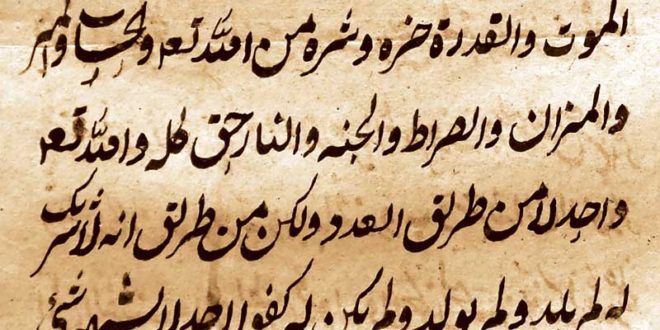 الموت والقدرة خيره وشره من الله تعه والحساب
والميزان والصراط والجنه والنار حق كله والله تعه
واحد لا من طريق العدد ولكن من طريق انه لا شريك
له لم يلد ولم يولد ولم يكن له كفوا احد لا يشبه شئ